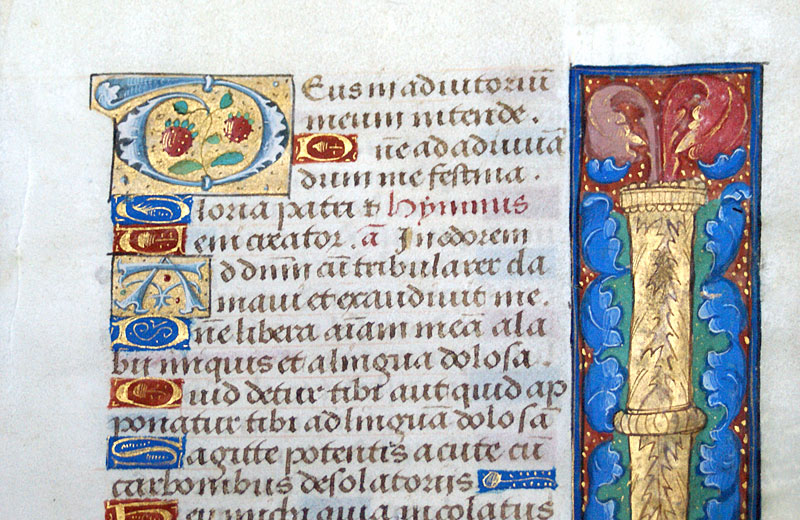 Deus in adiutoriū
meum intende.
Dne ad adiuuā
dum me festina.
Gloria patri &c Hymnus
Veni creator. ā In odorem
Ad dn̄m cū tribularer cla
maui et exaudiuit me.
Dne libera aīam meā a la
biis iniquis et a lingua dolosa.
Quid detur tibi aut quid ap
ponatur tibi ad linguā dolosā
Sagitte potentis acute cū
carbonibus desolatoriis
Heu michi quia incolatus